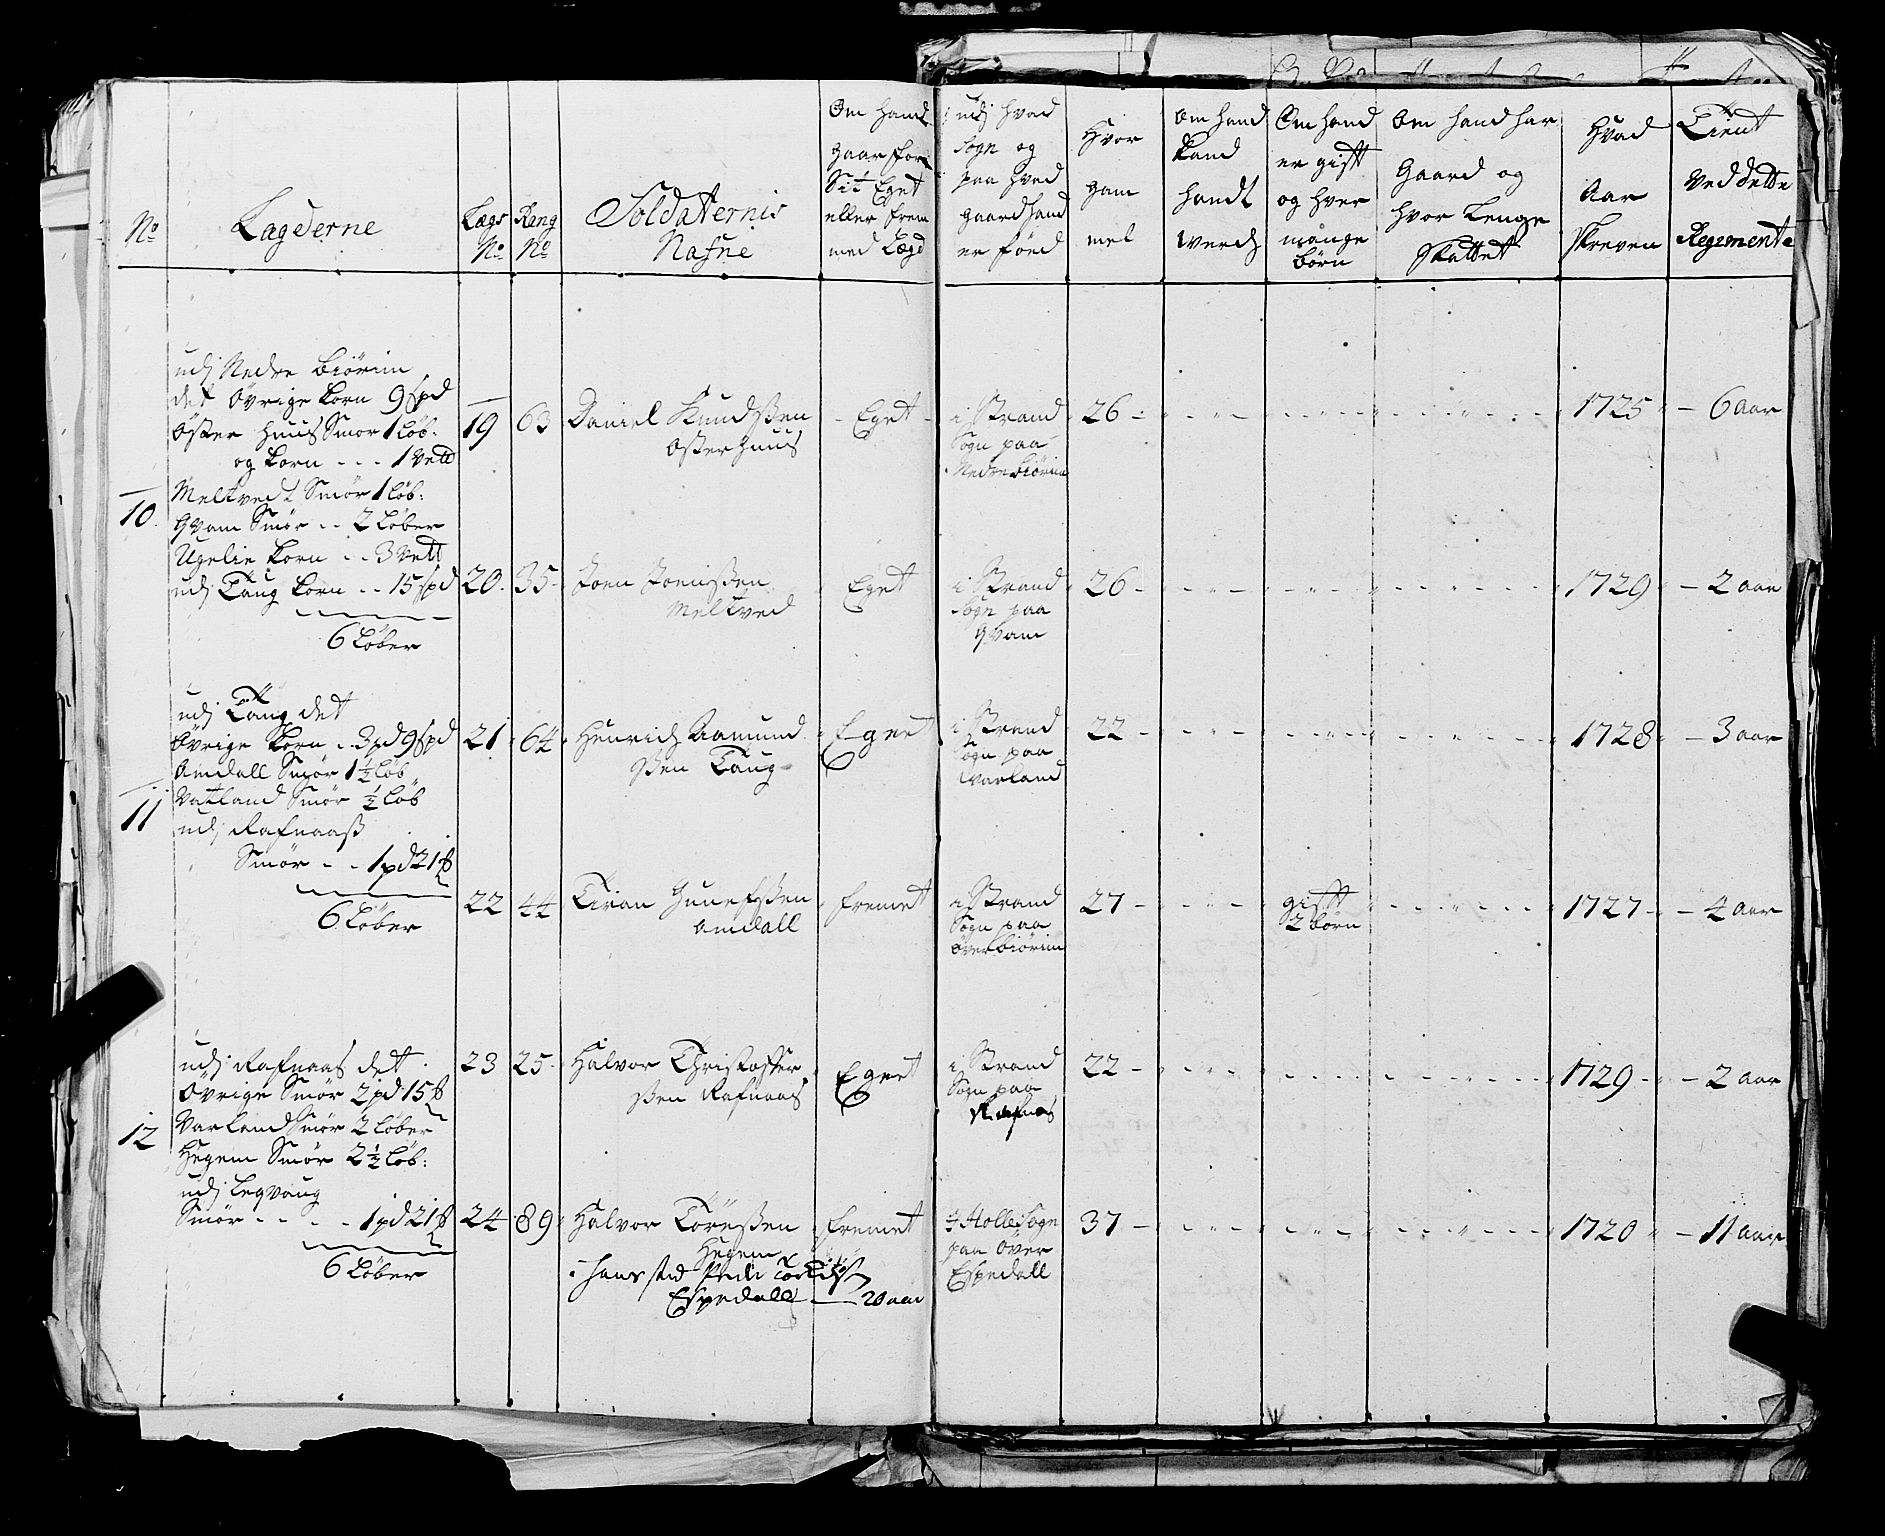 No
Lægderne
Lægs
No
Rang
No
Soldaternis
Nafne
Om hand
gaar for
Sit Eget
eller frem
med Lægd
udj hvad
Sogn og
paa hvad
gaard hand
er föed
Hvor
gam
mel
Om hand
kand
handt
werch
Om hand
er gift
og hvor
mange
börn
Om hand har
Gaard og
hvor lenge
Skattet
Hvad
Aar
skreven
Tient
ved dette
Regemente
udj Nedre Biörim
det övrige korn 9 spd
Öster Huus Smör 1 löb:
og korn - - - 1 vett
10.
Meltvedt Smör 1 löb:
Qvam Smör - - 2 löber
Ugelie korn - - 3 vett
udj Taug korn - - 15 spd
6 löber
19 63 Daniel Knudssen
Österhuus
Eget
i Strand
Sogn paa
Nedre Biörim
26 1725 6 aar
20. 35 Joen Joenssen
Meltved
Eget
i Strand
Sogn paa
Qvam
26 1729 2 aar
11
udj Taug det
övrige korn - 3 pd 9 spd
Amdall Smör 1 1/2 löb
Vatland Smör 1/2 löb
udj Rafnaass
Smör - - 1 pd 21 ℔
6 löber
21 64 Henrich Aamund
ssen Taug
Eget
i Strand
Sogn paa
Warland
22 1728 3 aar
22 44 Amdall
fremet
i Strand
Sogn paa
Över Biörim
27 gift
2 börn
1727 4 aar
12
udj Rafnaas det
övrige Smör 2 pd 15 ℔
Varland Smör 2 löber
Hegem Smör 2 1/2 löb:
udj Leqvaug
Smör - - - - 1 pd 21 ℔
6 löber
23 25 Halvor Christoffer
ssen Rafnaas
Eget
i Strand
Sogn paa
Rafnas
22 1729 2 aar
24 89 Halvor Toressen
Hegem
fremet
i Holle Sogn
paa Över
Espedall
37 1720 11 aar
hans sted
Espedall — 20 aar